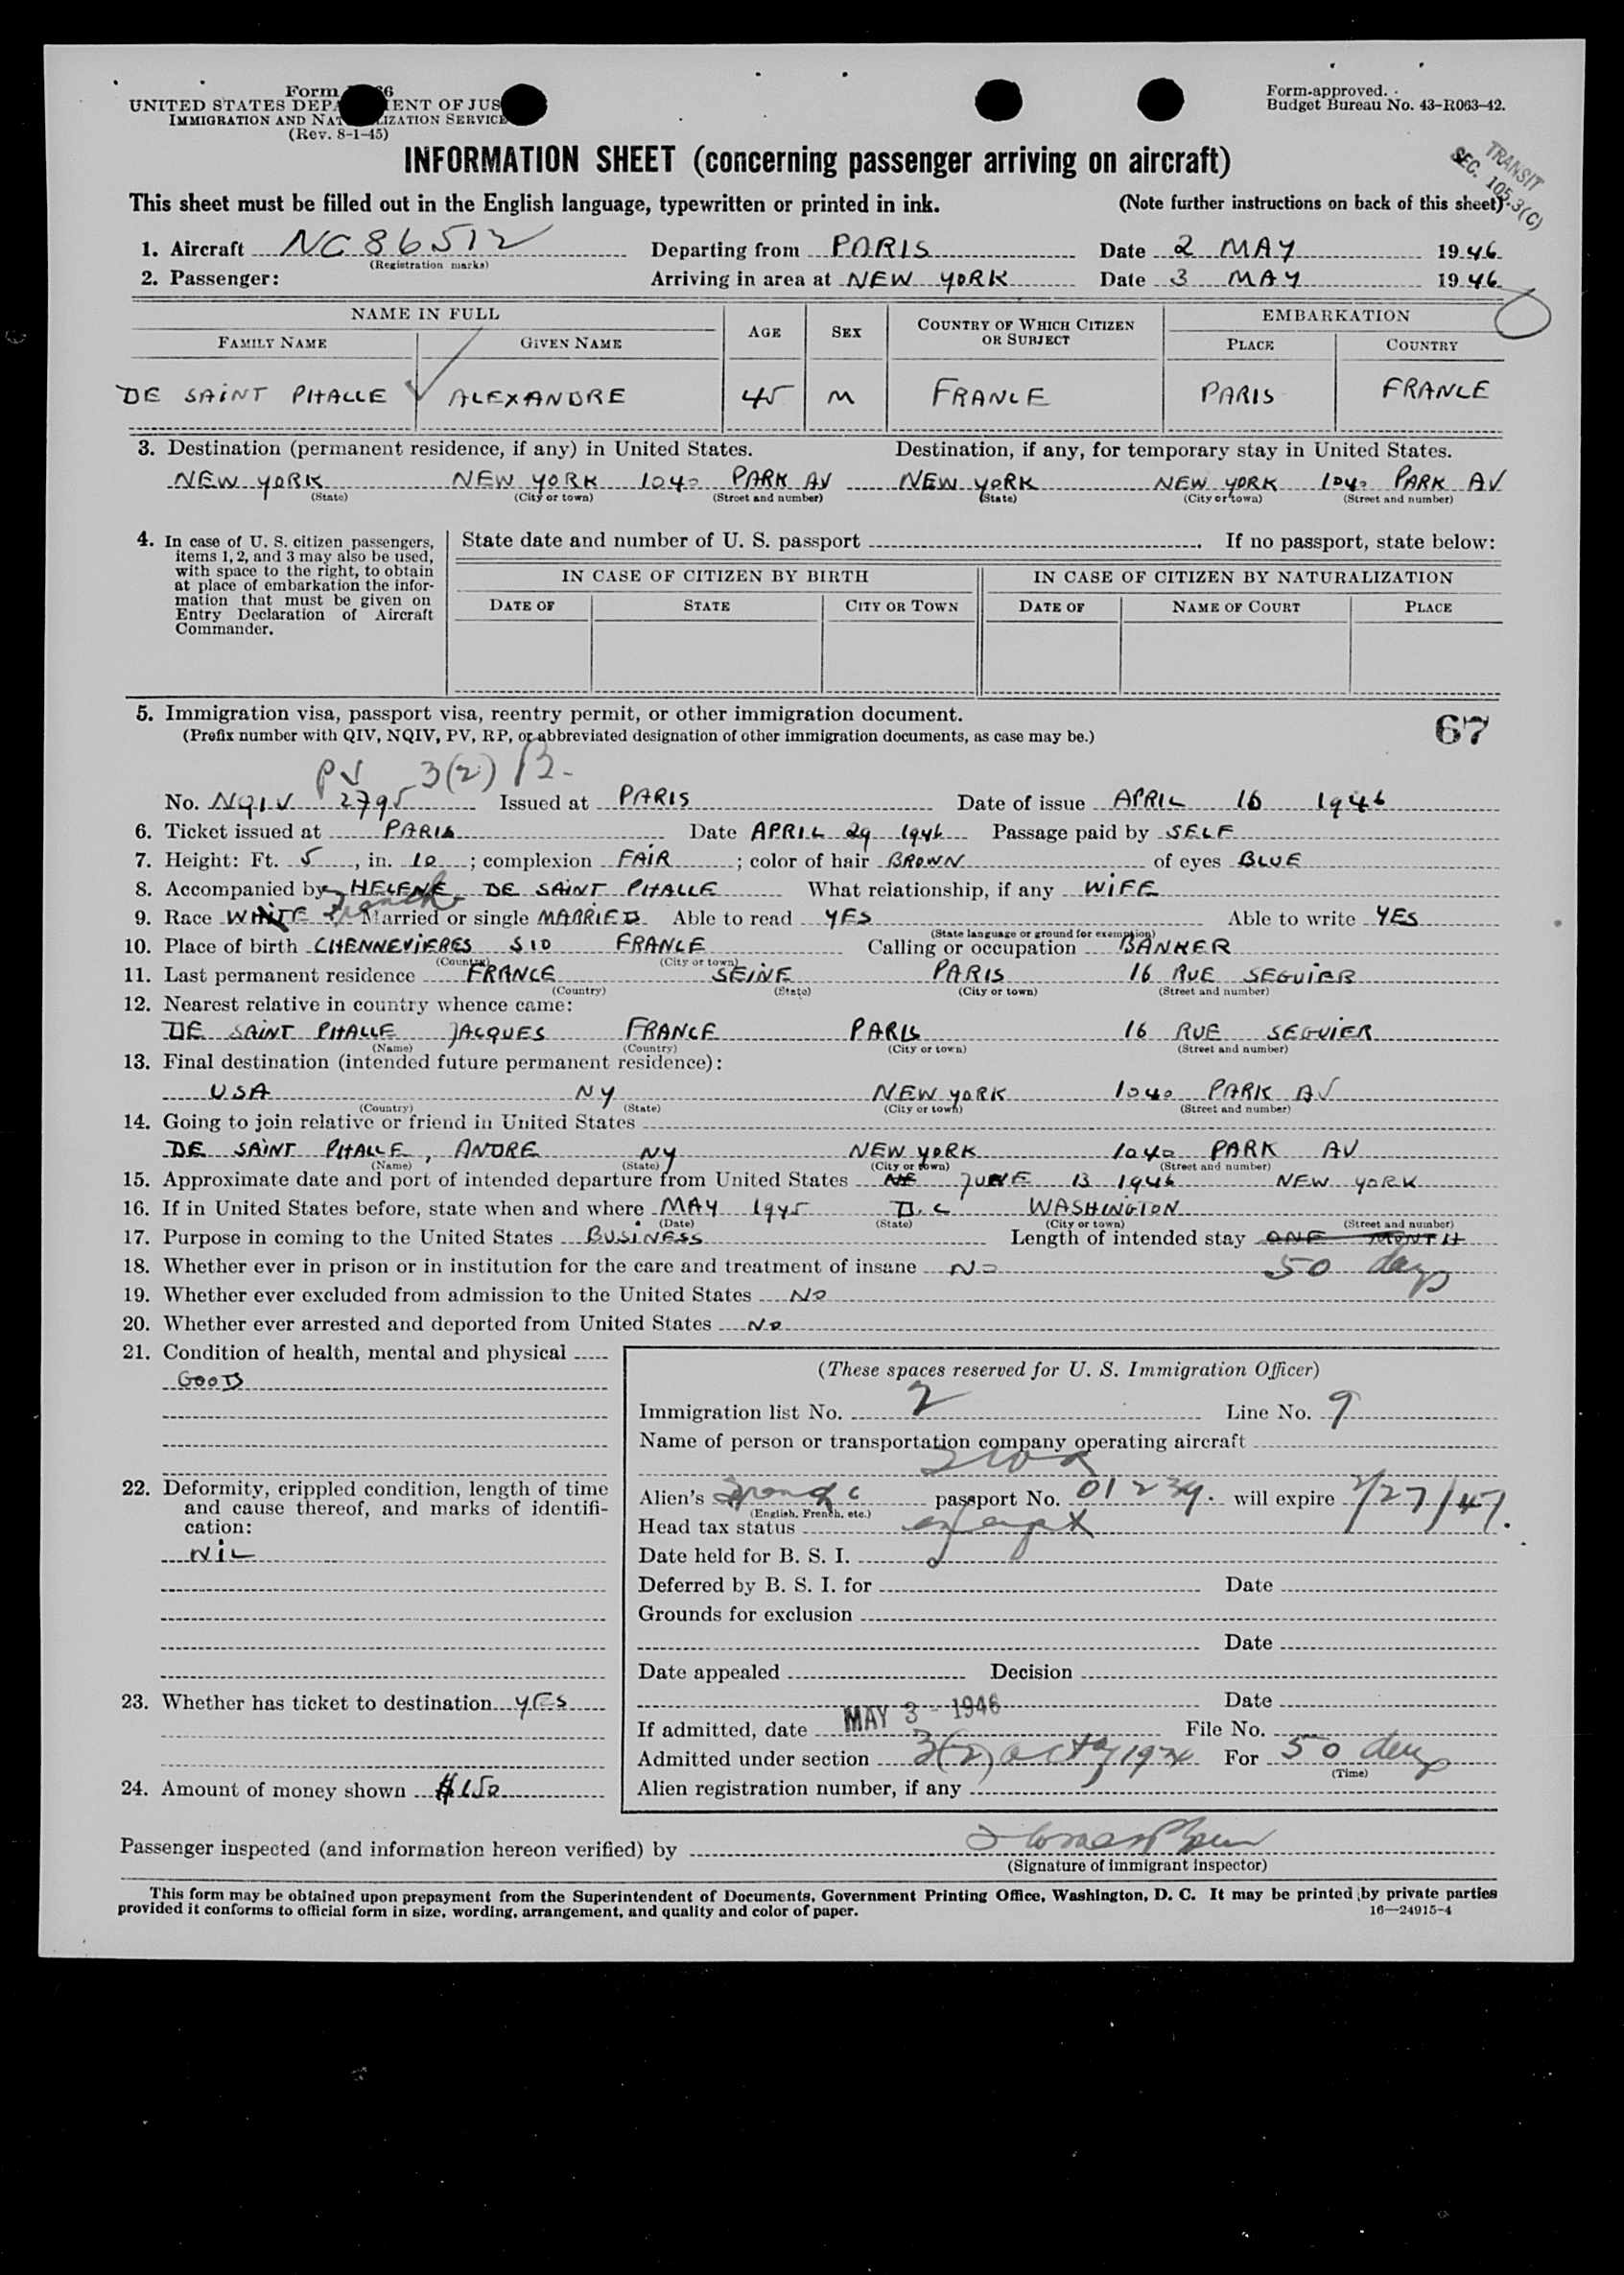 Form 66
UNITED STATES DEPA ENT OF JUS
IMMIGRATION AND NAT IZATION SERVICE
(Rev. 8-1-45)
Form approved.
Budget Bureau No. 43-R063-42.
INFORMATION SHEET (concerning passenger arriving on aircraft)
TRANSIT
SEC. 105.3(C)
This sheet must be filled out in the English language, typewritten or printed in ink. (Note further instructions on back of this sheet)
1. Aircraft NC 86512 Departing from PARIS Date 2 MAY 1946
(Registration marks)
2. Passenger: Arriving in area at NEW YORK Date 3 MAY 1946
NAME IN FULL AGE SEX COUNTRY OF WHICH CITIZEN OR SUBJECT EMBARKATION
FAMILY NAME GIVEN NAME PLACE COUNTRY
DE SAINT PHALLE ALEXANDRE 45 M FRANCE PARIS FRANCE
3. Destination (permanent residence, if any) in United States. Destination, if any, for temporary stay in United States.
NEW YORK NEW YORK 1040 PARK AV NEW YORK NEW YORK 1040 PARK AV
(State) (City or town) (Street and number) (State) (City or town) (Street and number)
4. In case of U. S. citizen passengers,
items 1, 2, and 3 may also be used,
with space to the right, to obtain
at place of embarkation the infor-
mation that must be given on
Entry Declaration of Aircraft
Commander.
State date and number of U. S. passport . If no passport, state below:
IN CASE OF CITIZEN BY BIRTH IN CASE OF CITIZEN BY NATURALIZATION
DATE OF STATE CITY OR TOWN DATE OF NAME OF COURT PLACE
5. Immigration visa, passport visa, reentry permit, or other immigration document.
67
(Prefix number with QIV, NQIV, PV, RP, or abbreviated designation of other immigration documents, as case may be.)
PV 3(2) B-
No. NQIV 2795 Issued at PARIS Date of issue APRIL 16 1946
6. Ticket issued at PARIS Date APRIL 29 1946 Passage paid by SELF
7. Height: Ft. 5, in. 10; complexion FAIR; color of hair BROWN of eyes BLUE
8. Accompanied by HELENE DE SAINT PHALLE What relationship, if any WIFE
9. Race WHITE French Married or single MARRIED Able to read YES Able to write YES
(State language or ground for exemption)
10. Place of birth CHENNEVIERES S10 FRANCE Calling or occupation BANKER
(Country) (City or town)
11. Last permanent residence FRANCE SEINE PARIS 16 RUE SEGUIER
(Country) (State) (City or town) (Street and number)
12. Nearest relative in country whence came:
DE SAINT PHALLE JACQUES FRANCE PARIS 16 RUE SEGUIER
(Name) (Country) (City or town) (Street and number)
13. Final destination (intended future permanent residence):
USA NY NEW YORK 1040 PARK AV
(Country) (State) (City or town) (Street and number)
14. Going to join relative or friend in United States
DE SAINT PHALLE, ANDRE NY NEW YORK 1040 PARK AV
(Name) (State) (City or town) (Street and number)
15. Approximate date and port of intended departure from United States NE JUNE 13 1946 NEW YORK
16. If in United States before, state when and where MAY 1945 D.C WASHINGTON
(Date) (State) (City or town) (Street and number)
17. Purpose in coming to the United States BUSINESS Length of intended stay ONE MONTH
50 days
18. Whether ever in prison or in institution for the care and treatment of insane NO
19. Whether ever excluded from admission to the United States NO
20. Whether ever arrested and deported from United States NO
21. Condition of health, mental and physical
GOOD
22. Deformity, crippled condition, length of time
and cause thereof, and marks of identifi-
cation:
NIL
23. Whether has ticket to destination YES
24. Amount of money shown $150
(These spaces reserved for U. S. Immigration Officer)
Immigration list No. 2 Line No. 9
Name of person or transportation company operating aircraft
Alien's passport No. 01239. will expire 2/27/47.
(English, French, etc.)
Head tax status exempt
Date held for B. S. I.
Deferred by B. S. I. for Date
Grounds for exclusion
Date
Date appealed Decision
Date
If admitted, date MAY 3 - 1946 File No.
Admitted under section 3(2) act of 1924 For 50 days
(Time)
Alien registration number, if any
Passenger inspected (and information hereon verified) by
(Signature of immigrant inspector)
This form may be obtained upon prepayment from the Superintendent of Documents, Government Printing Office, Washington, D. C. It may be printed by private parties
provided it conforms to official form in size, wording, arrangement, and quality and color of paper.
16—24915-4